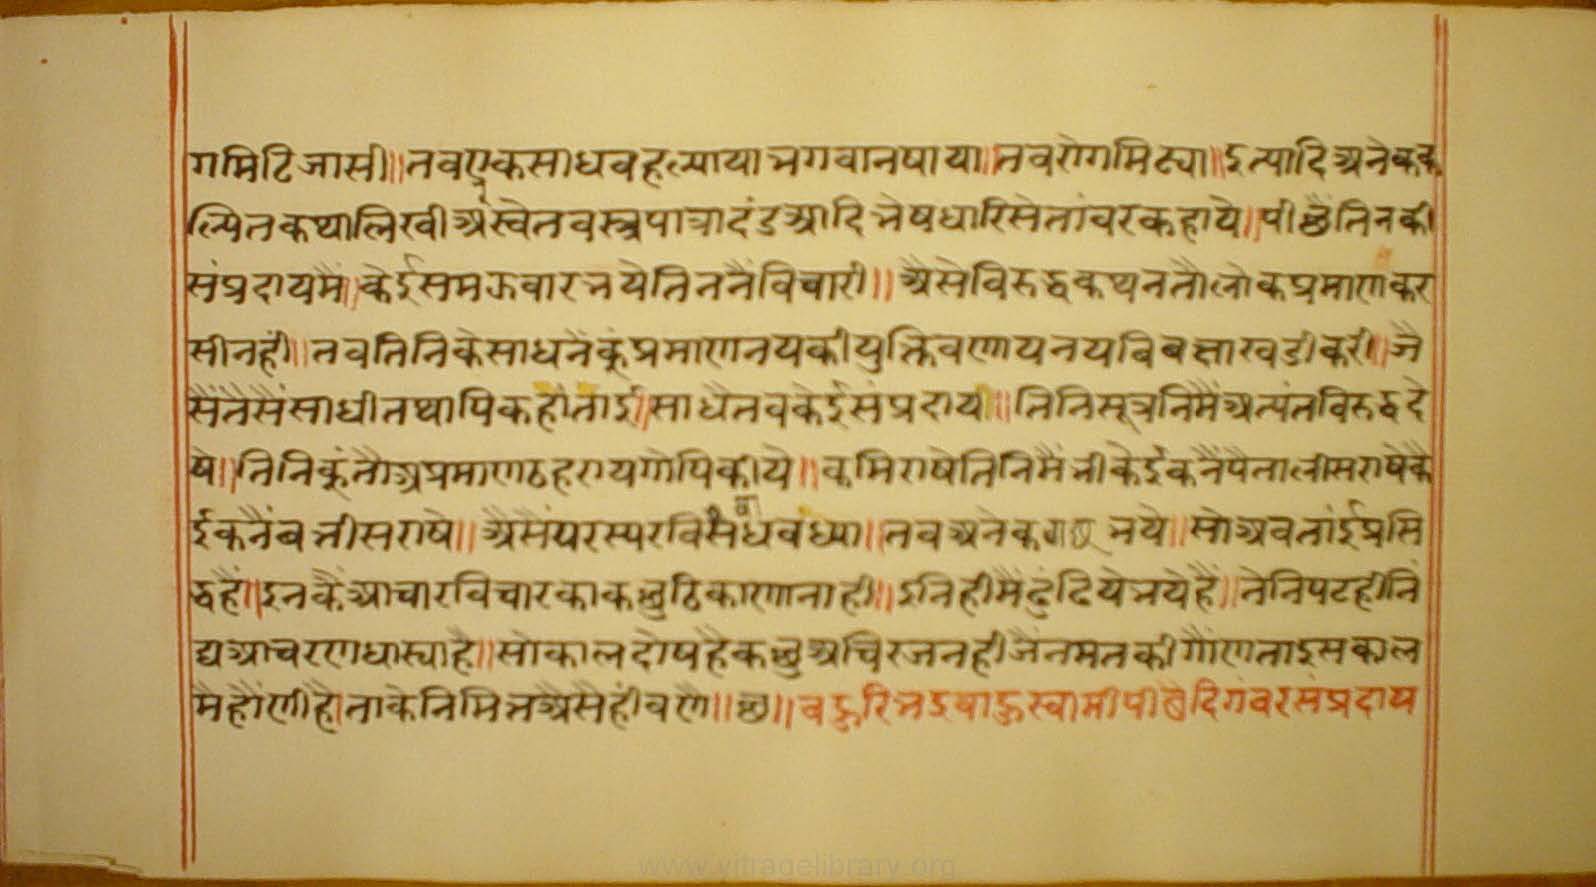 गमिटिजासी॥तवएकसाधवहल्याया भगवानषाया॥तवरोगमिट्या॥इत्यादिअनेकक
ल्पितकथालिखीअरस्वेतवस्त्रपात्रादंडआदिभेषधारिसेतांवरकहाये॥पीछैतिनकी
संप्रदायमैं॥केईसमऊवारभयेतिननैंविचारी॥अैसेविरुद्धकथनतौलोकप्रमाणकर
सीनहीं॥तवतिनिकेसाधनैंकूंप्रमाणनयकीयुक्तिवणायनयबिबक्षाखडीकरी॥जै
सैंतैसैंसाधीतथापिकहांतांई॥साधैतवकेईसंप्रदायी॥तिनिसूत्रनिमैंअत्यंतविरुद्धदे
षे॥तिनिकूंतौअप्रमाणठहरायगोपिकीये॥कमिराषेतिनिमैंभीकेईकनैंपैतालीसराषेकै
ईकनैंबत्तीसराषे॥अैसैंपरस्परविरोधवंध्या॥तवअनेक गछ भये॥सोअवतांईप्रसि
द्धहैं॥इनकैंआचारविचारकाकछुठिकाणानाही॥इनिहीमैंढुंढियेभयेहैं॥तेनिपटहीनिं
द्यआचरणधास्याहै॥सोकालदोषहैकछुअचिरजनहीजैंनमतकीगौंणताइसकाल
मैहौंणीहै।ताकेनिमित्तअैसैहींवणै॥छ॥वहुरिभद्रवाहुस्वामीपीछैदिगंवरसंप्रदाय
www.vitragelibrary.org